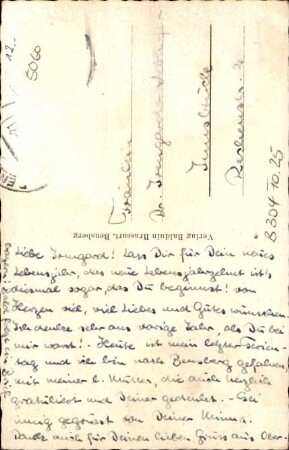 12.-
5060
Fräulein
Dr. Irmgard
Innsbruck
Verlag Balduin Brassart, Bensberg
B304/10.25
Liebe Irmgard! Lass Dir für Dein neues
Lebensjahr, das neue Lebensjahrzehnt ist's
diesmal sogar, das Du beginnst! von
Herzen viel, viel Liebes und Gutes wünschen.
Ich denke sehr ans vorige Jahr, als Du bei
mir warst! - Heute ist mein letzter Ferien-
tag und ich bin nach Bensberg gefahren
mit meiner l. Mutter, die auch herzlich
gratuliert und Deiner gedenkt. - Sei
innig gegrüsst von Deiner
Danke auch für Deinen lieben Gruss aus Ober-